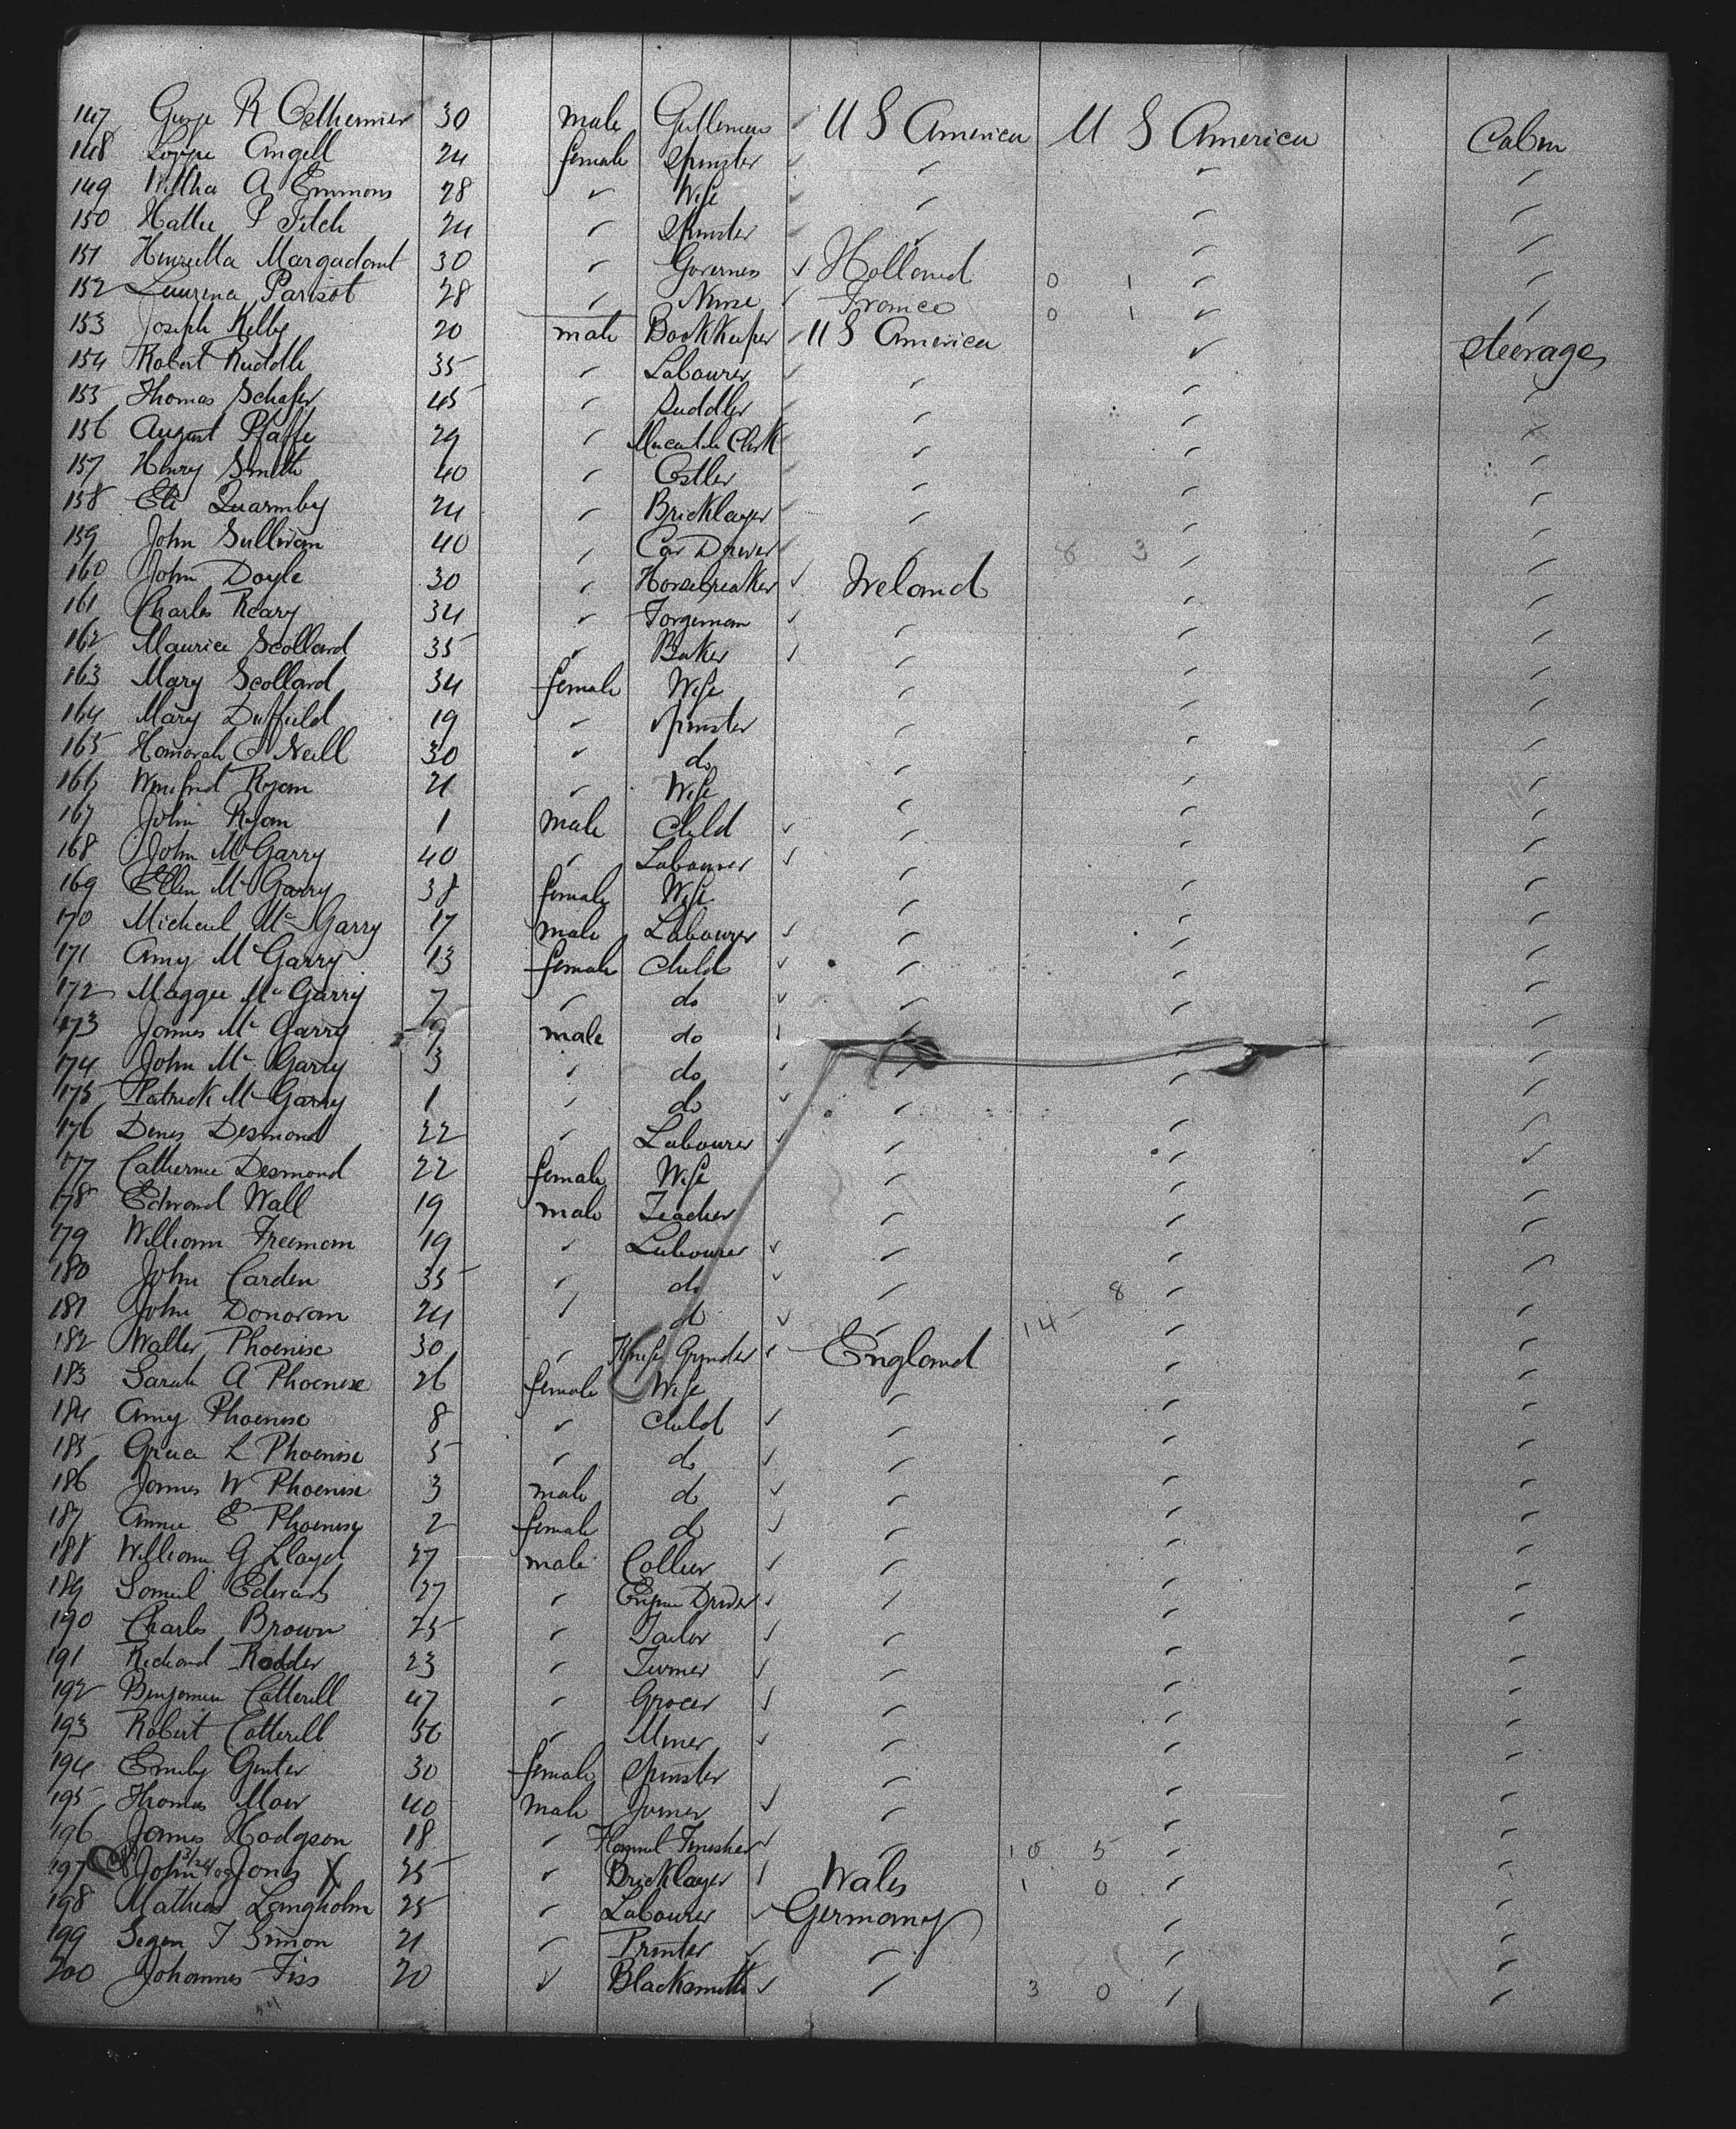 147 George R 30 male Gentleman U S America U S America Cabin
148 Angell 24 female Spinster ✓ ✓ ✓ ✓
149 A Emmons 28 ✓ Wife ✓ ✓ ✓ ✓
150 Hattie P Fitch 24 ✓ Spinster ✓ ✓ ✓ ✓
151 Henrietta Margadant 30 ✓ Governess ✓ Holland 0 1 ✓ ✓
152 Parisot 28 ✓ Nurse ✓ France 0 1 ✓ ✓
153 Joseph Kelby 20 male Bookkeeper ✓ U S America ✓ Steerage
154 Robert Ruddle 35 ✓ Labourer ✓ ✓ ✓ ✓
155 Thomas Schafer 45 ✓ Puddler ✓ ✓ ✓ ✓
156 August Pfaffe 29 ✓ Clerk ✓ ✓ ✓ ✓
157 Henry Smith 40 ✓ Ostler ✓ ✓ ✓ ✓
158 Eli Quarmby 24 ✓ Bricklayer ✓ ✓ ✓ ✓
159 John Sullivan 40 ✓ Car Driver ✓ ✓ 8 3 ✓ ✓
160 John Doyle 30 ✓ Horsebreaker ✓ Ireland ✓ ✓
161 Charles Reary 34 ✓ Forgeman ✓ ✓ ✓ ✓
162 Maurice Scollard 35 ✓ Baker ✓ ✓ ✓ ✓
163 Mary Scollard 34 female Wife ✓ ✓ ✓
164 Mary Duffield 19 ✓ Spinster ✓ ✓ ✓
165 Honorah O Neill 30 ✓ do ✓ ✓ ✓
166 Winifred Ryan 21 ✓ Wife ✓ ✓ ✓
167 John Ryan 1 male Child ✓ ✓ ✓ ✓
168 John McGarry 40 ✓ Labourer ✓ ✓ ✓ ✓
169 Ellen McGarry 38 female Wife ✓ ✓ ✓
170 Michael McGarry 17 male Labourer ✓ ✓ ✓ ✓
171 Amy McGarry 13 female Child ✓ ✓ ✓ ✓
172 Maggie McGarry 7 ✓ do ✓ ✓ ✓ ✓
173 James McGarry male do ✓ ✓ ✓ ✓
174 John McGarry 3 ✓ do ✓ ✓ ✓ ✓
175 Patrick McGarry 1 ✓ do ✓ ✓ ✓ ✓
176 Denis Desmond 22 ✓ Labourer ✓ ✓ ✓ ✓
177 Catherine Desmond 22 female Wife ✓ ✓ ✓
178 Edmond Wall 19 male Teacher ✓ ✓ ✓
179 William Freeman 19 ✓ Labourer ✓ ✓ ✓ ✓
180 John Carden 35 ✓ do ✓ ✓ 8 ✓ ✓
181 John Donovan 24 ✓ do ✓ ✓ 14 ✓ ✓
182 Walter Phoenix 30 ✓ Knife Grinder ✓ England ✓ ✓
183 Sarah A Phoenix 26 female Wife ✓ ✓ ✓
184 Amy Phoenix 8 ✓ Child ✓ ✓ ✓ ✓
185 Grace L Phoenix 5 ✓ do ✓ ✓ ✓ ✓
186 James W Phoenix 3 male do ✓ ✓ ✓ ✓
187 Annie E Phoenix 2 female do ✓ ✓ ✓ ✓
188 William G Lloyd 27 male Collier ✓ ✓ ✓ ✓
189 Samuel Edwards 27 ✓ Engine Driver ✓ ✓ ✓ ✓
190 Charles Brown 25 ✓ Tailor ✓ ✓ ✓ ✓
191 Richard Rodder 23 ✓ Turner ✓ ✓ ✓ ✓
192 Benjamin Cotterill 47 ✓ Grocer ✓ ✓ ✓ ✓
193 Robert Cotterill 50 ✓ Miner ✓ ✓ ✓ ✓
194 Emily Gunter 30 female Spinster ✓ ✓ ✓
195 Thomas Moir 40 male Joiner ✓ ✓ ✓ ✓
196 James Hodgson 18 ✓ Finisher ✓ ✓ 10 5 ✓ ✓
197 John Jones X 25 ✓ Bricklayer ✓ Wales 1 0 ✓ ✓
198 Mathias Langholm 25 ✓ Labourer ✓ Germany ✓ ✓
199 Segen J Simon 21 ✓ Printer ✓ ✓ ✓ ✓
200 Johannes Fiss 20 ✓ Blacksmith ✓ ✓ 3 0 ✓ ✓